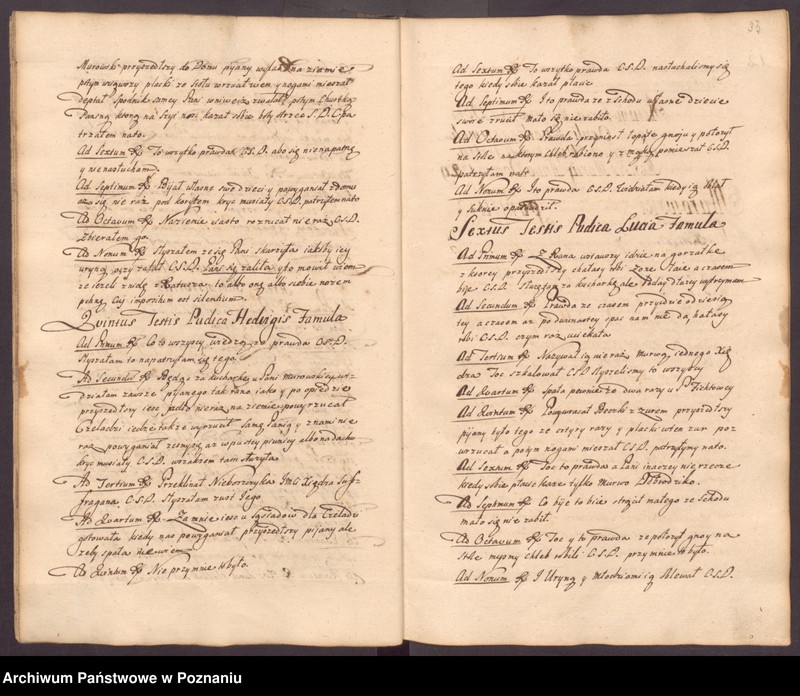 Murowski przyszedłszy do Domu pijany wylał na ziemię
potym wszystkę placki ze stołu wrzucał w ziem y nogami mieszał
deptał Spodnik samey Pani wniwecz potym Chustkę
Swoią którą na szyi nosi kazał sobie C.S.D. Ja
trzałem na to.
Ad Sextum Rx To wszytko prawda C.S.D. abo się nie napatrzę
y nie nasłucham.
Ad Septimum Rx Bijał własne swe dzieci y powyganiał z domu
aż się nie raz pod korytem kryć musiały C.S.D. patrzyłem na to
Ad Octavum Rx Na ziemię ciasto rozrzucał nie raz C.S.D.
Zbierałem go.
Ad Nonum Rx Słyszałem że się Pani skarzyła jakoby iey
uryną oczy zalał C.S.D. Pani się zaliła y to mowił wiem
ze iezeli znidę z Ratusza to albo onę albo siebie nozem
pchnę. Cui impositum est silentium.
Quintus Testis Pudica Hedvigis Famula
Ad Primum Rx Co to wszyscy wiedzą, ze prawda C.S.D.
Słyszałam to napatrzyłam się tego.
Ad Secundum Rx Będąc za kucharkę u Pani Murowskiey wi-
działam zawsze pijanego tak rano jako y po opiedzie
przyszedłszy ieść stołu nieraz na ziemię powyrzucał
Czeladzi iedzę także wyrzucił samę Panią y z nami nie
raz powyganiał ześmy się aż w pustey piwnicy albo na dachu
kryć musiały C.S.D. wszakzem tam służyła
Ad Tertium Rx Przeklinał Nieboszczyka JMci Xiędza Suf-
fragana C.S.D. Słyszałam z ust Jego
Ad Quartum Rx Za mnie ieść u Sąsiadow dla Czeladzi
gotowała kiedy nas powyganiał przyszedłszy pijany ale
zeby spała nie wiem
Ad Quintum Rx Nie przy mnie to było.
35
Ad Sextum Rx To wszytko prawda C.S.D. nasłuchalismy się
tego kiedy sobie kazał płacić
Ad Septimum Rx I to prawda ze z Schodu własne dziecie
swoie zrucił mało się nie zabiło.
Ad Octavum Rx Prawda przyniosł łopatę gnoju y położył
na stole na ktorym Chleb robiono y z mąką pomieszał C.S.D.
patrzyłam na to
Ad Nonum Rx I to prawda C.S.D. widziałam kiedy ią oblał
y suknie opaskudził.
Sextus Testis Pudica Lucia Famula
Ad Primum Rx Z Rana wstawszy idzie na gorzałkę
z ktorey przyszedszy chałasy robi Zonę Łaie a czasem
biie C.S.D. Słuzę tam za kucharkę ale daley wytrzymam
Ad Secundum Rx Prawda ze czasem przyidzie o dziesią
tey a czasem aż po dwunastey spać nam nie da, hałasy
robi C.S.D. czym raz uciekała
Ad Tertium Rx Nazywał ią nie raz Kurwą iednego Xię
dza Toc szkalował C.S.D. słyszelismy to wszyscy
Ad Quartum Rx Spała pewnie ze dwa razy u P. Fichtowey
Ad Quintum Rx Powywracał Beczki z zurem przyszedszy
pijany było tego ze cztyry razy y placki w ten zur poz
wrzucał a potym nogami mieszał C.S.D. patrzyłymy na to.
Ad Sextum Rx Toc to prawda a Pani inaczey nie rzecze
kiedy sobie płacić każe tylko Mum Dobrodziko.
Ad Septimum Rx Co biie to biie strącił małego ze Schodu
mało się nie zabił.
Ad Octavum Rx Toc y to prawda ze położył gnoy na
stole my my chleb robili C.S.D. przy mnie to było.
Ad Nonum Rx I Uryną y Młodziami ią oblewał C.S.D.
Archiwum Państwowe w Poznaniu